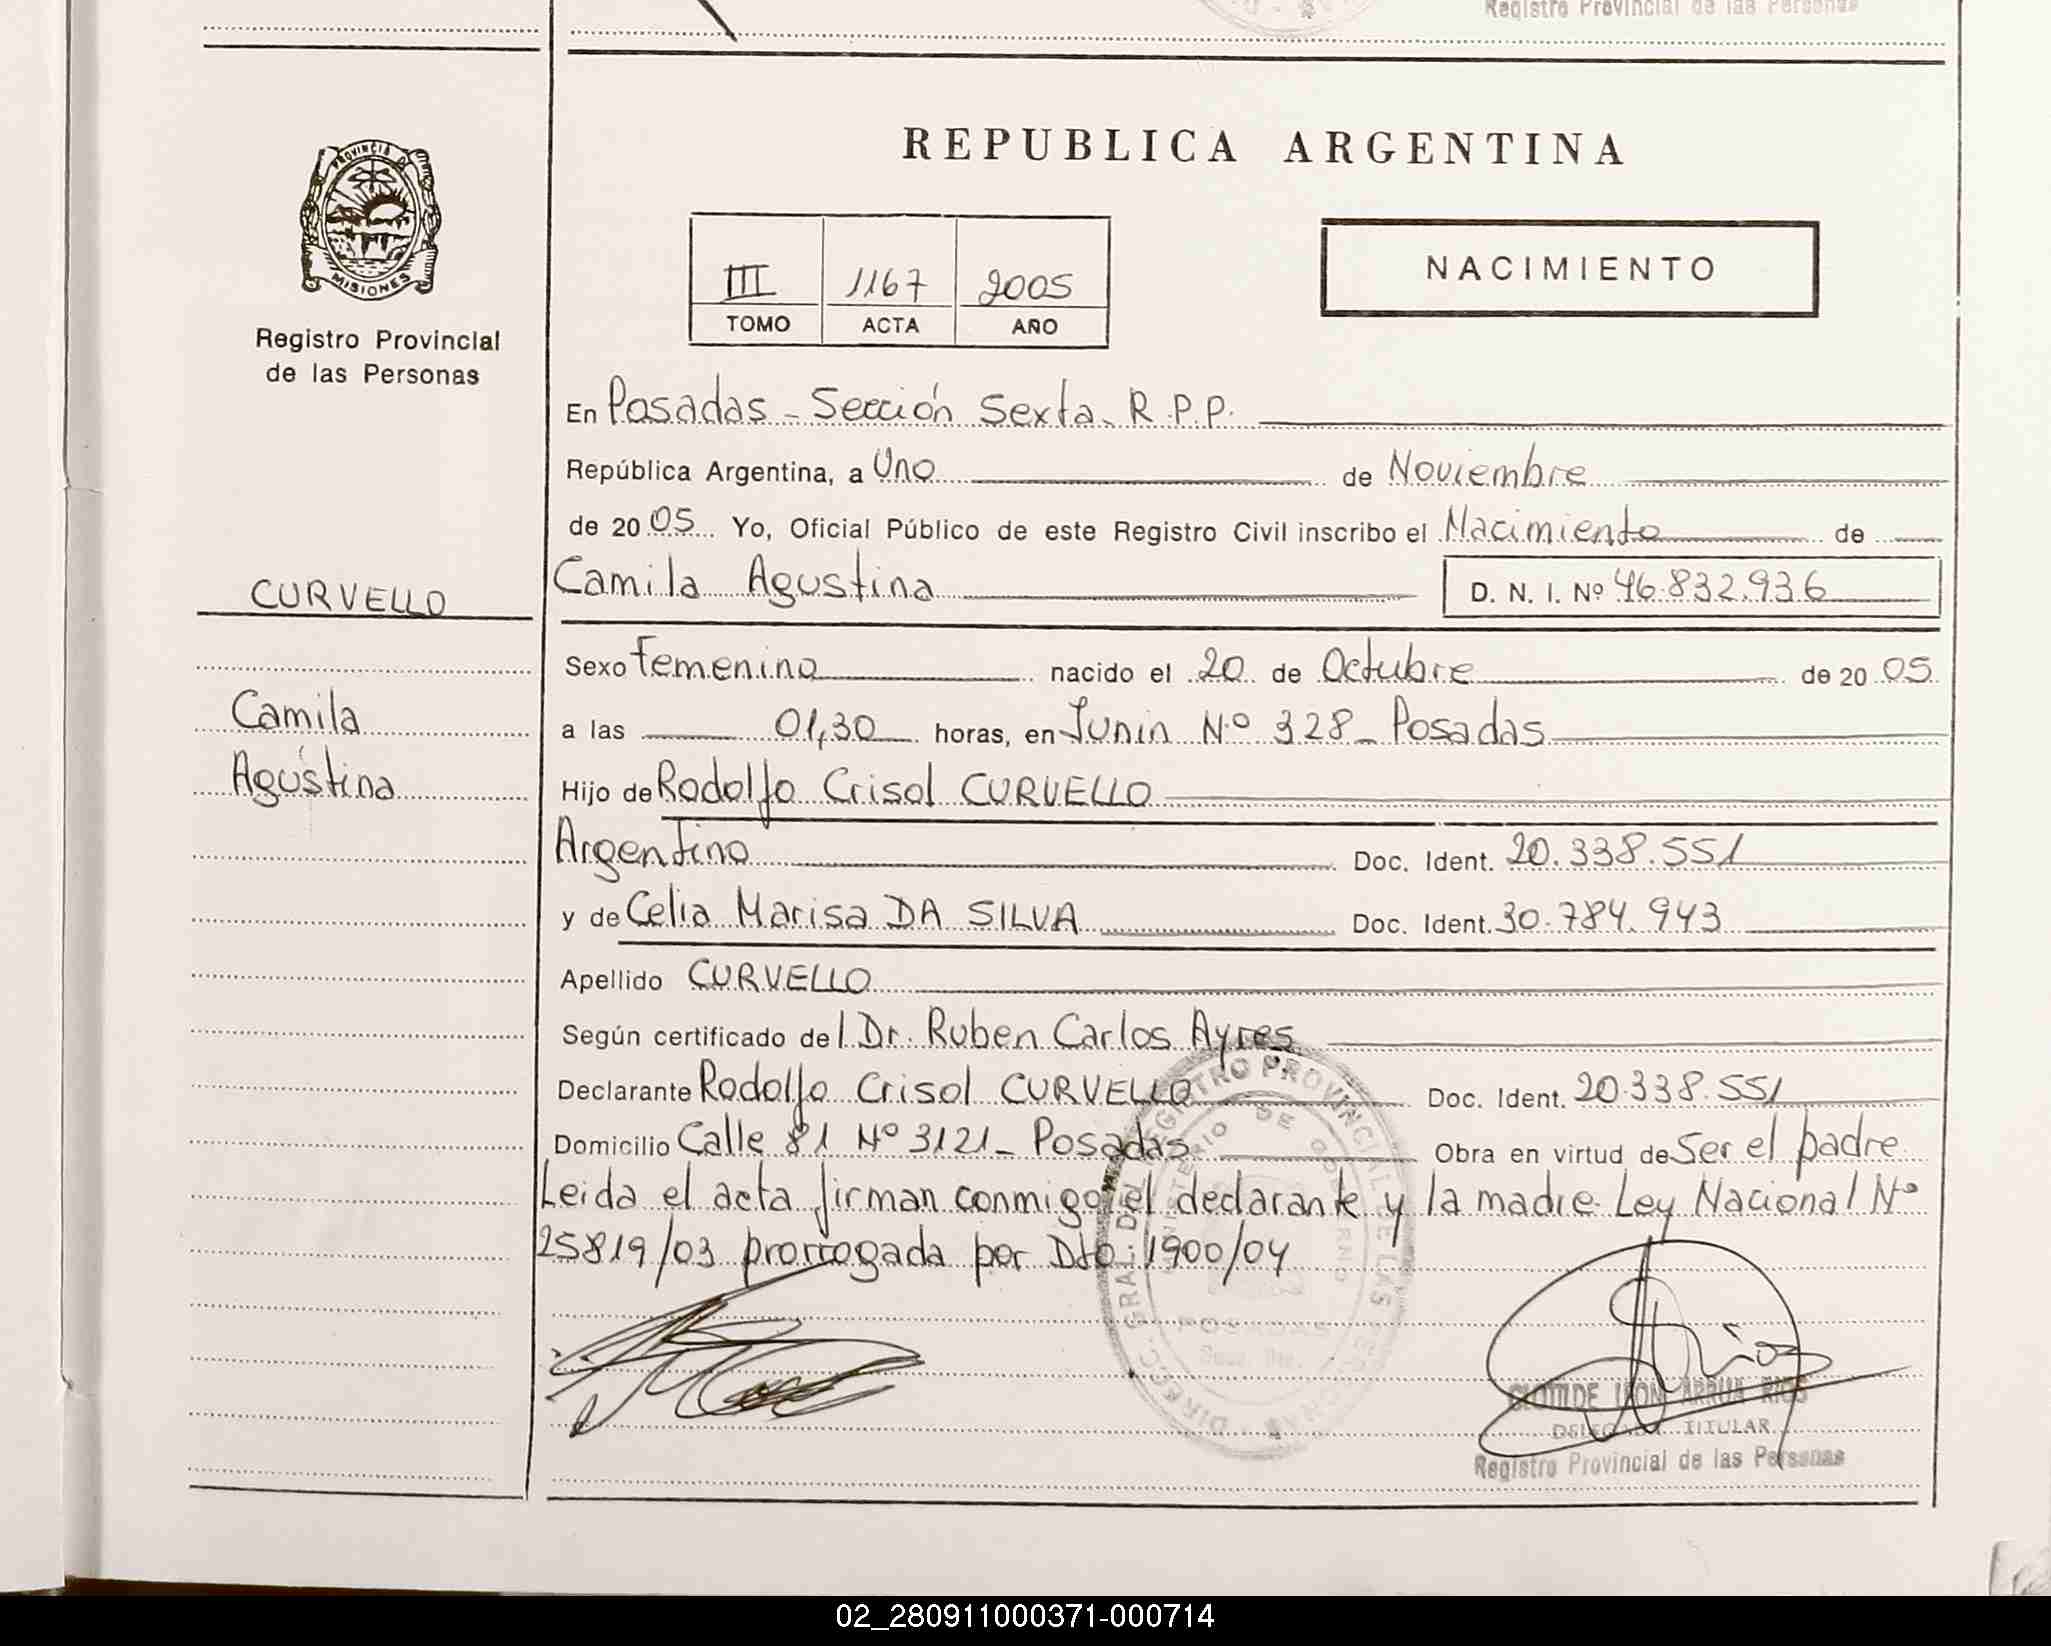 Registro Provincial de las Personas
REPUBLICA ARGENTINA
PROVINCIA DE
MISIONES
Registro Provincial
de las Personas
III 1167 2005
TOMO ACTA AÑO
NACIMIENTO
En Posadas - Sección Sexta. R.P.P.
República Argentina, a Uno de Noviembre
de 2005 Yo, Oficial Público de este Registro Civil inscribo el Nacimiento de
CURVELLO
Camila Agustina D. N. I. Nº 46.832.936
Sexo Femenino nacido el 20 de Octubre de 2005
Camila
a las 01,30 horas, en Junin Nº 328 - Posadas
Agustina
Hijo de Rodolfo Crisol CURVELLO
Argentino Doc. Ident. 20.338.551
y de Celia Marisa DA SILVA Doc. Ident. 30.784.943
Apellido CURVELLO
Según certificado del Dr. Ruben Carlos Ayres
Declarante Rodolfo Crisol CURVELLO Doc. Ident. 20.338.551
Domicilio Calle 81 Nº 3121 - Posadas Obra en virtud de Ser el padre
Leida el acta firman conmigo el declarante y la madre. Ley Nacional Nº
25819/03 prorrogada por Dto. 1900/04
DIRECC. GRAL. DEL REGISTRO PROVINCIAL DE LAS PERSONAS
MINISTERIO DE GOBIERNO
POSADAS
CLOTILDE LEON ARRUA RIOS
DELEGADA TITULAR
Registro Provincial de las Personas
02_280911000371-000714